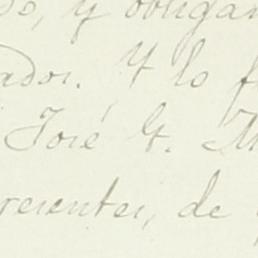 y obligan
ador. Y lo f
José G. M
resentes, de